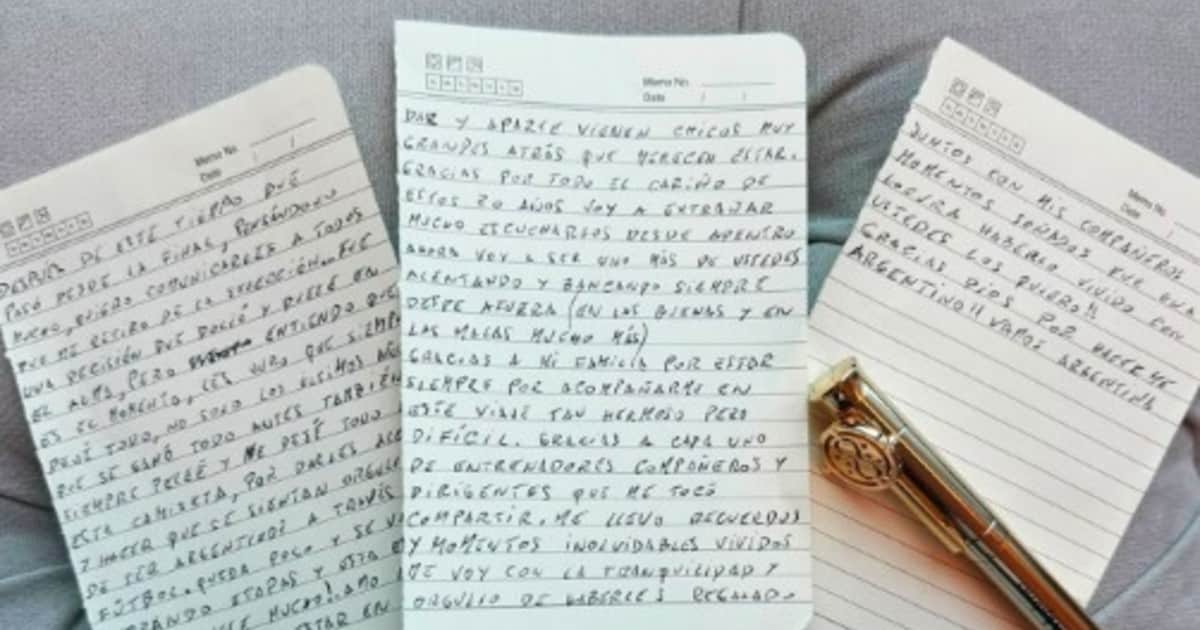 Memo No.
Date / /
DESPUÉS DE ESTE TIEMPO QUE
PASÓ DESDE LA FINAL, PENSÁNDOLO
MUCHO, QUIERO COMUNICARLES A TODOS
QUE ME RETIRO DE LA SELECCIÓN. FUE
UNA DECISIÓN QUE DOLIÓ Y DUELE EN
EL ALMA, PERO ENTIENDO QUE
ES EL MOMENTO, LES JURO QUE SIEMPRE
DEJÉ TODO, NO SOLO LOS ÚLTIMOS AÑOS
QUE SE GANÓ TODO ANTES TAMBIÉN
SIEMPRE PELEÉ Y ME DEJÉ TODO
ESTA CAMISETA, POR DARLES
Y HACER QUE SE SIENTAN
DE SER ARGENTINOS A TRAVÉS
FÚTBOL. QUEDA POCO Y SE VA
ETAPAS Y ESTA
MUCHO! AMO
ESTAR EN
Memo No.
Date / /
DAR Y APARTE VIENEN CHICOS MUY
GRANDES ATRÁS QUE MERECEN ESTAR.
GRACIAS POR TODO EL CARIÑO DE
ESTOS 20 AÑOS VOY A EXTRAÑAR
MUCHO ESCUCHARLOS DESDE ADENTRO
AHORA VOY A SER UNO MÁS DE USTEDES
ALENTANDO Y BANCANDO SIEMPRE
DESDE AFUERA (EN LAS BUENAS Y EN
LAS MALAS MUCHO MÁS)
GRACIAS A MI FAMILIA POR ESTAR
SIEMPRE POR ACOMPAÑARME EN
ESTE VIAJE TAN HERMOSO PERO
DIFÍCIL. GRACIAS A CADA UNO
DE ENTRENADORES COMPAÑEROS Y
DIRIGENTES QUE ME TOCÓ
COMPARTIR. ME LLEVO RECUERDOS
Y MOMENTOS INOLVIDABLES VIVIDOS
ME VOY CON LA TRANQUILIDAD Y
ORGULLO DE HABERLES REGALADO
Memo No.
Date /
JUNTOS CON MIS COMPAÑEROS
MOMENTOS SOÑADOS FUE UNA
LOCURA HABERLO VIVIDO CON
USTEDES LOS QUIERO!!
GRACIAS DIOS POR HACERME
ARGENTINO!! VAMOS ARGENTINA